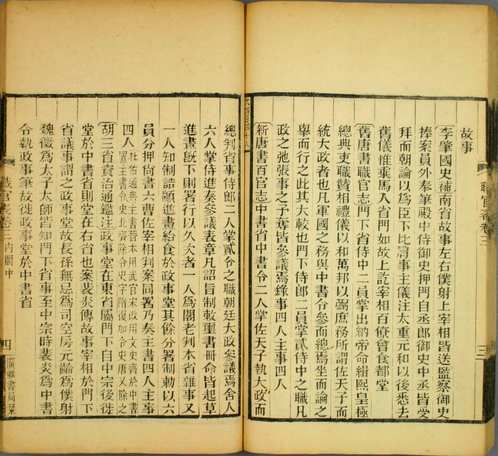 故事
李肇國史補南省故事左右僕射上宰相皆送監察御史
捧案員外奉筆殿中侍御史押門自丞郎御史中丞皆受
拜而朝論以爲臣下比肩事主儀注太重元和以後悉去
舊儀惟乘馬入省門如故上訖宰相百僚會食都堂
舊唐書職官志門下省侍中二員掌出納帝命緝熙皇極
總典吏職贊相禮儀以和萬邦以弼庶務所謂佐天子而
統大政者也凡軍國之務與中書令參而總焉坐而論之
舉而行之此其大較也門下侍郎二員掌貳侍中之職凡
政之弛張事之予奪皆參議焉錄事四人主事四人
新唐書百官志中書省中書令二人掌佐天子執大政而
總判省事侍郎二人掌貳令之職朝廷大政參議焉舍人
六人掌侍進奏參議表章凡詔旨制敕璽書冊命皆起草
進畫既下則署行以久次者一人爲閣老判本省雜事又
一人知制誥顓進畫給食於政事堂其餘分署制敕以六
員分押尚書六曹佐宰相判案同署乃奏主書四人主事
四人
胡三省資治通鑑注政事堂在東省屬門下自中宗後徙
堂於中書省則堂在右省也案裴炎傳故事宰相於門下
省議事謂之政事堂故長孫無忌爲司空房元齡爲僕射
魏徵爲太子太師皆知門下省事至中宗時裴炎爲中書
令執政事筆故徙政事堂於中書省
職官表卷三
內閣中
四
廣雅書局栞